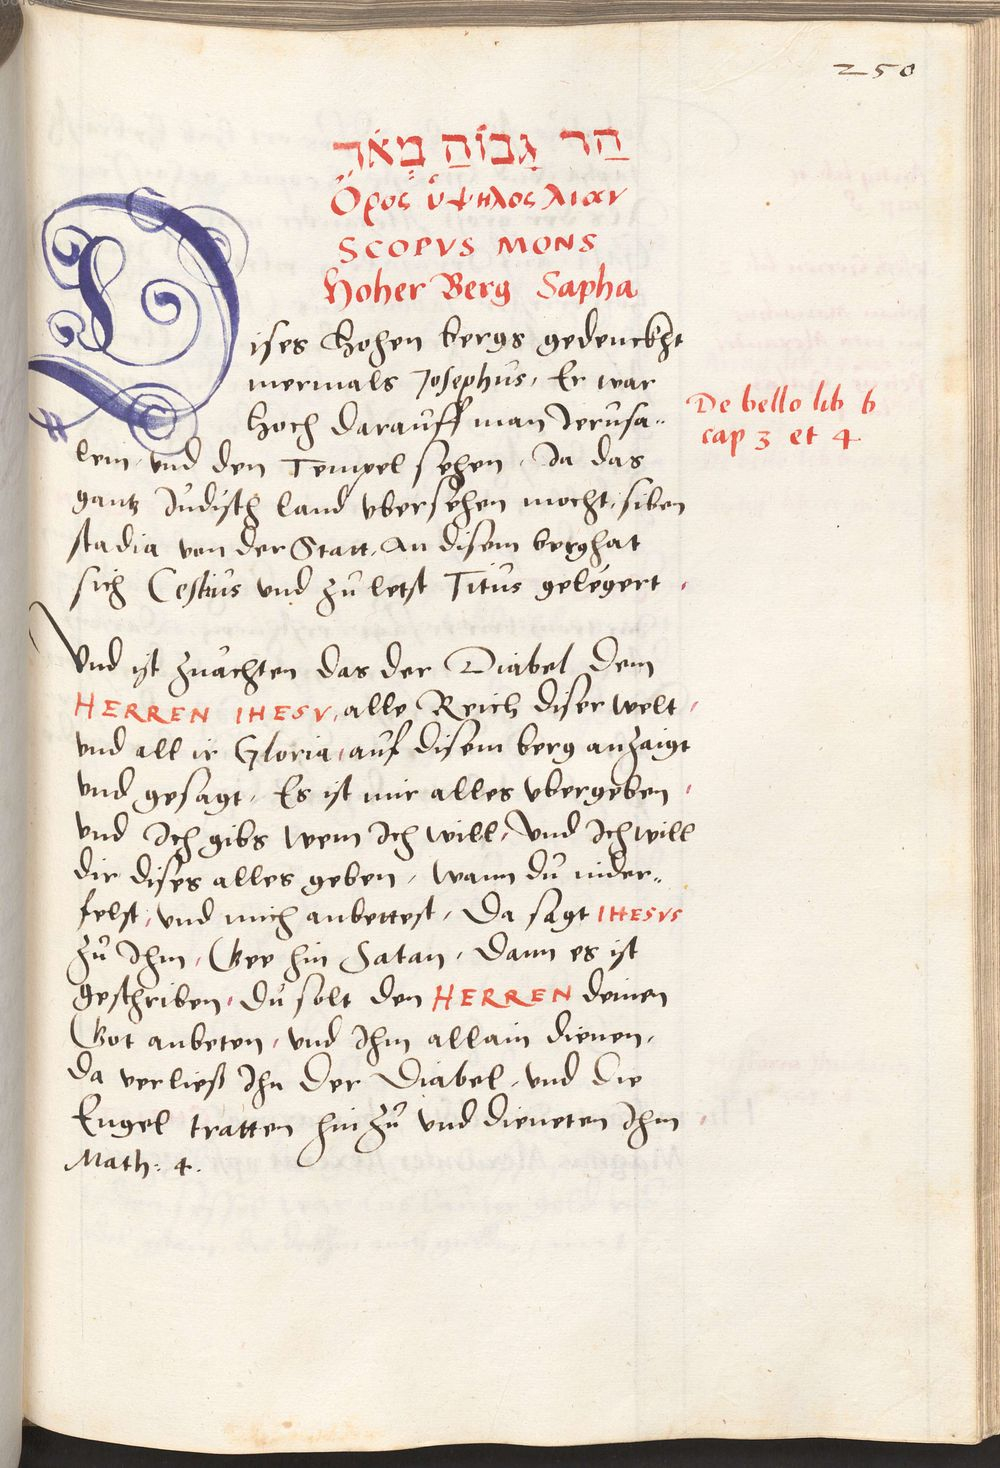 250
הַר גָבוֹהַ מְאֹד
Ὄρος ὑψηλος λιαν
SCOPVS MONS
Hoher Berg Sapha
Dises Hohen bergs gedenckht
mermals Josephus, Er war
Hoch darauff man Jerusa-
lem, vnd den Tempel sehen, Ja das
gantz Judisch land vbersehen mocht, siben
stadia von der Statt, An disem berg hat
sich Cestius vnd zu letst Titus gelegert.
De bello lib 6
cap 3 et 4
Vnd ist zuachten das der Diabel dem
HERREN IHESV, alle Reich diser welt,
vnd all ir Gloria, auf disem berg anzaigt
vnd gesagt, Es ist mir alles vbergeben,
vnd Ich gibs wem Ich will, Vnd Ich will
dir dises alles geben, Wann du nider-
felst, vnd mich anbettest, Da sagt IHESVS
zu Ihm, Gee hin Satan, Dann es ist
geschriben, Du solt den HERREN deinen
Got anbeten, vnd Ihm allain dienen,
Da verließ Ihn Der Diabel, vnd die
Engel tratten hin zu vnd dieneten Ihm,
Math: 4.